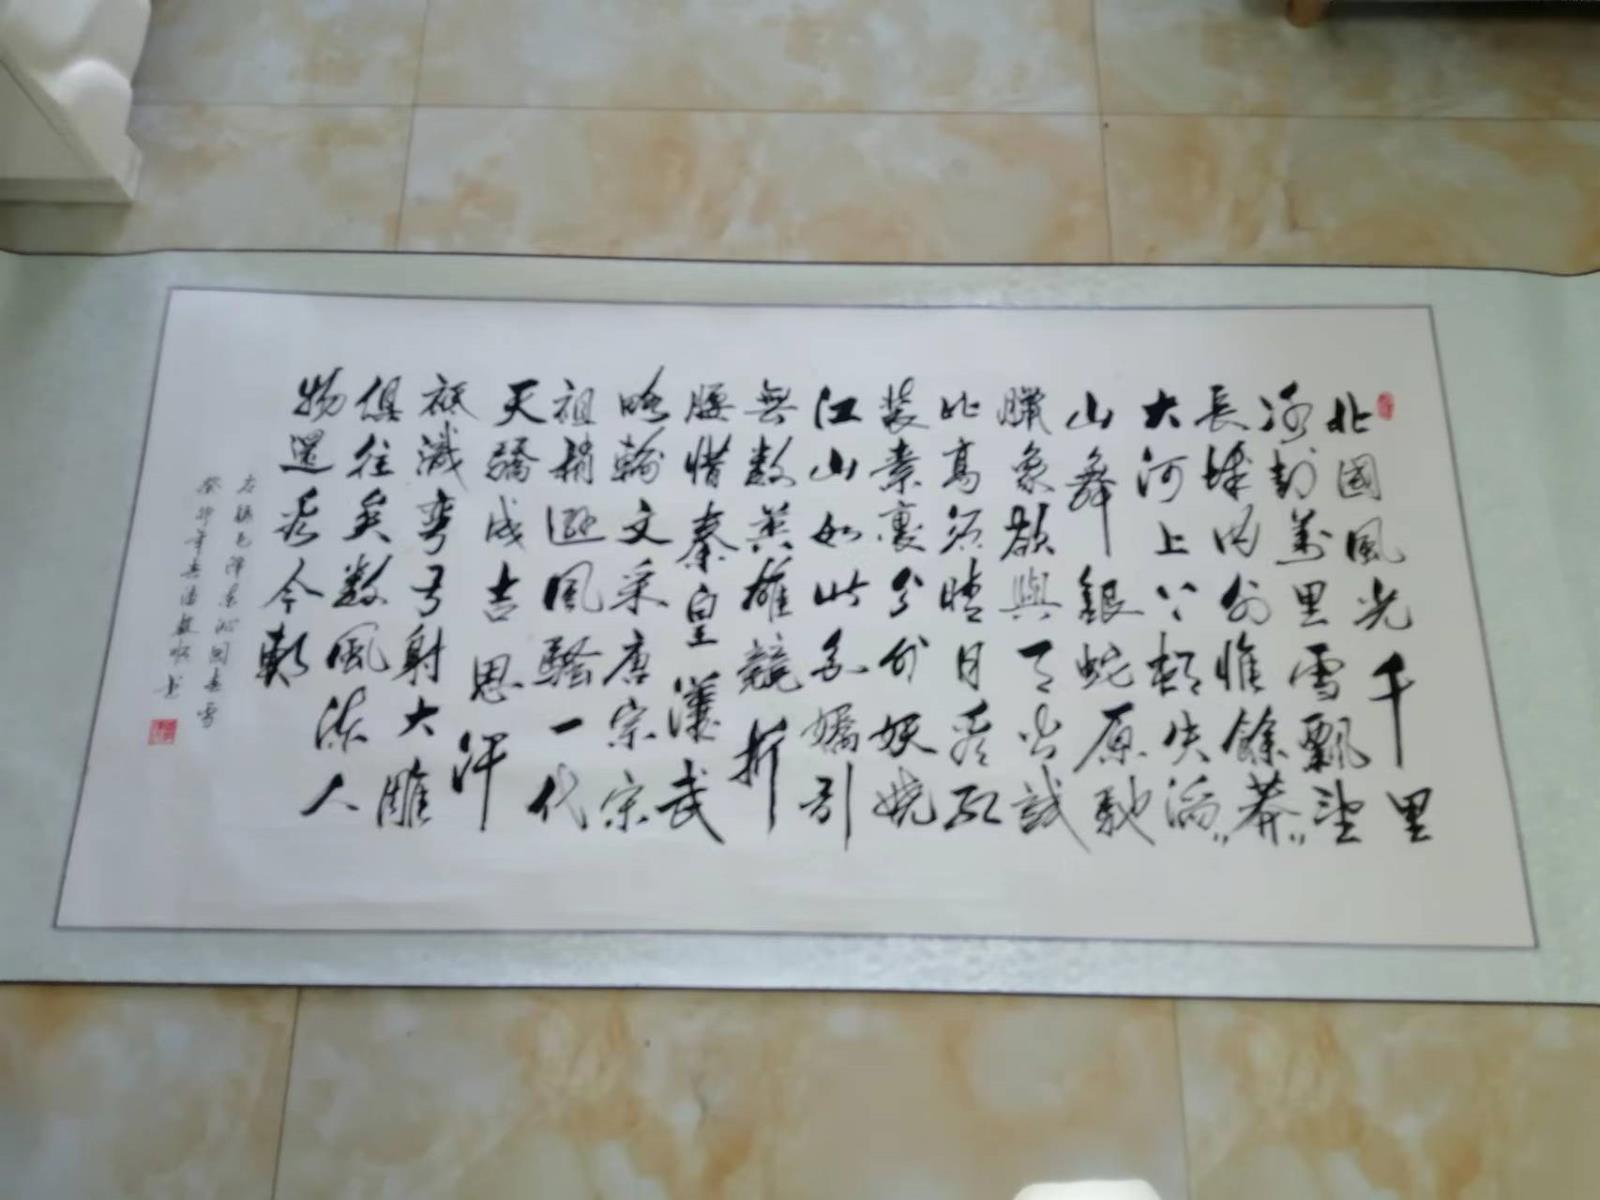 北國風光千里
冰封萬里雪飄望
長城内外惟餘莽〻
大河上下頓失滔〻
山舞銀蛇原馳
臘象欲與天公試
比高須晴日看紅
裝素裹分外妖嬈
江山如此多嬌引
無數英雄競折
腰惜秦皇漢武
略輸文采唐宗宋
祖稍遜風騷一代
天驕成吉思汗
祇識彎弓射大雕
俱往矣數風流人
物還看今朝
右錄毛澤東沁園春雪
癸卯年
書